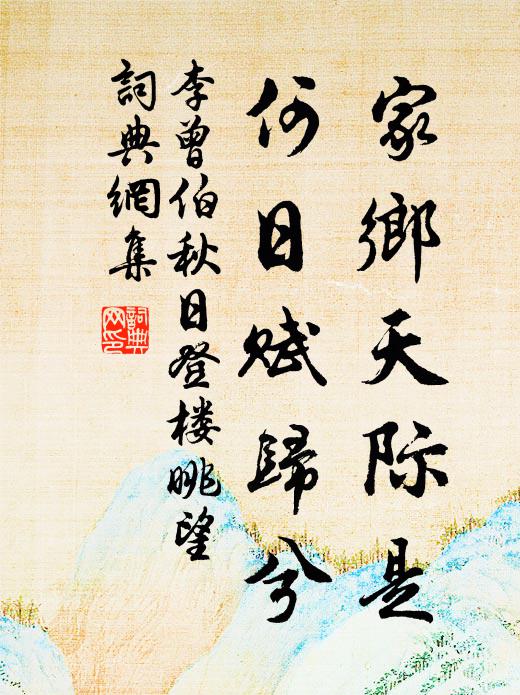 家鄉天际是
何日赋歸兮
李曾伯秋日登楼眺望
詞典網集
詞典网印